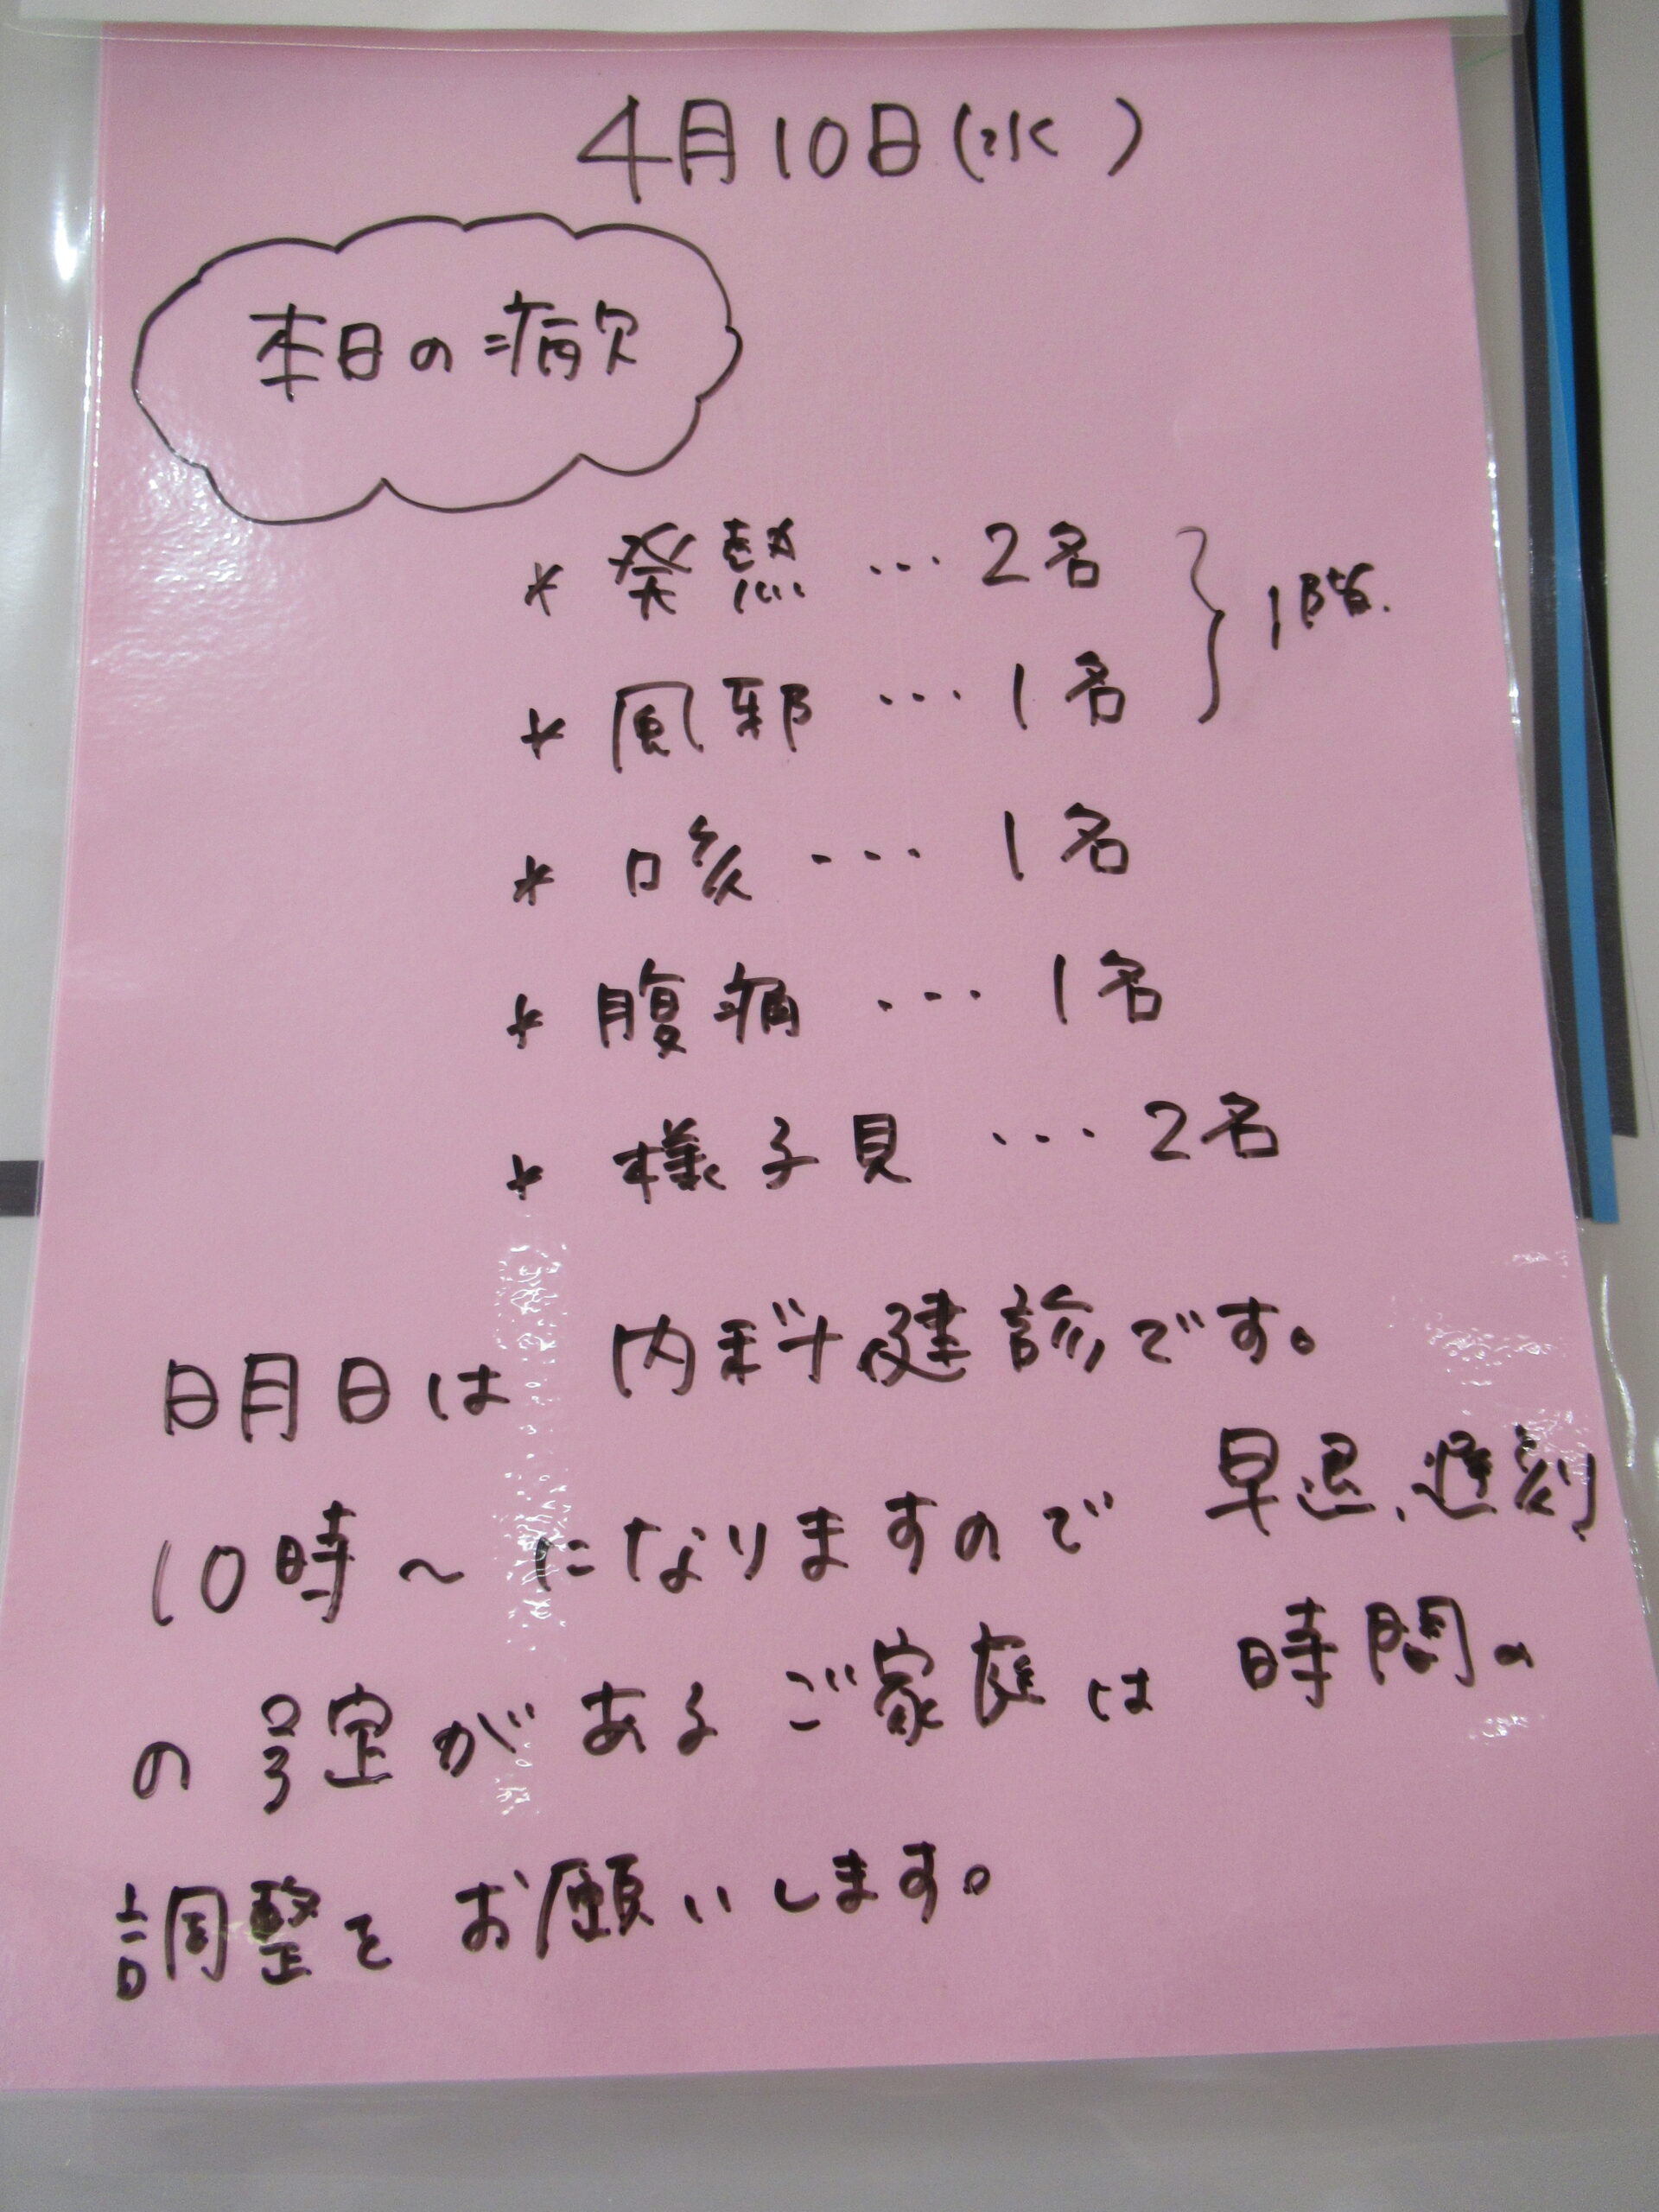 4月10日(水)
本日の病欠
* 発熱 … 2名
* 風邪 … 1名
1階.
* 咳 … 1名
* 腹痛 … 1名
* 様子見 … 2名
明日は 内科健診です。
10時～になりますので 早退、遅刻
の予定がある ご家庭は 時間の
調整を お願いします。